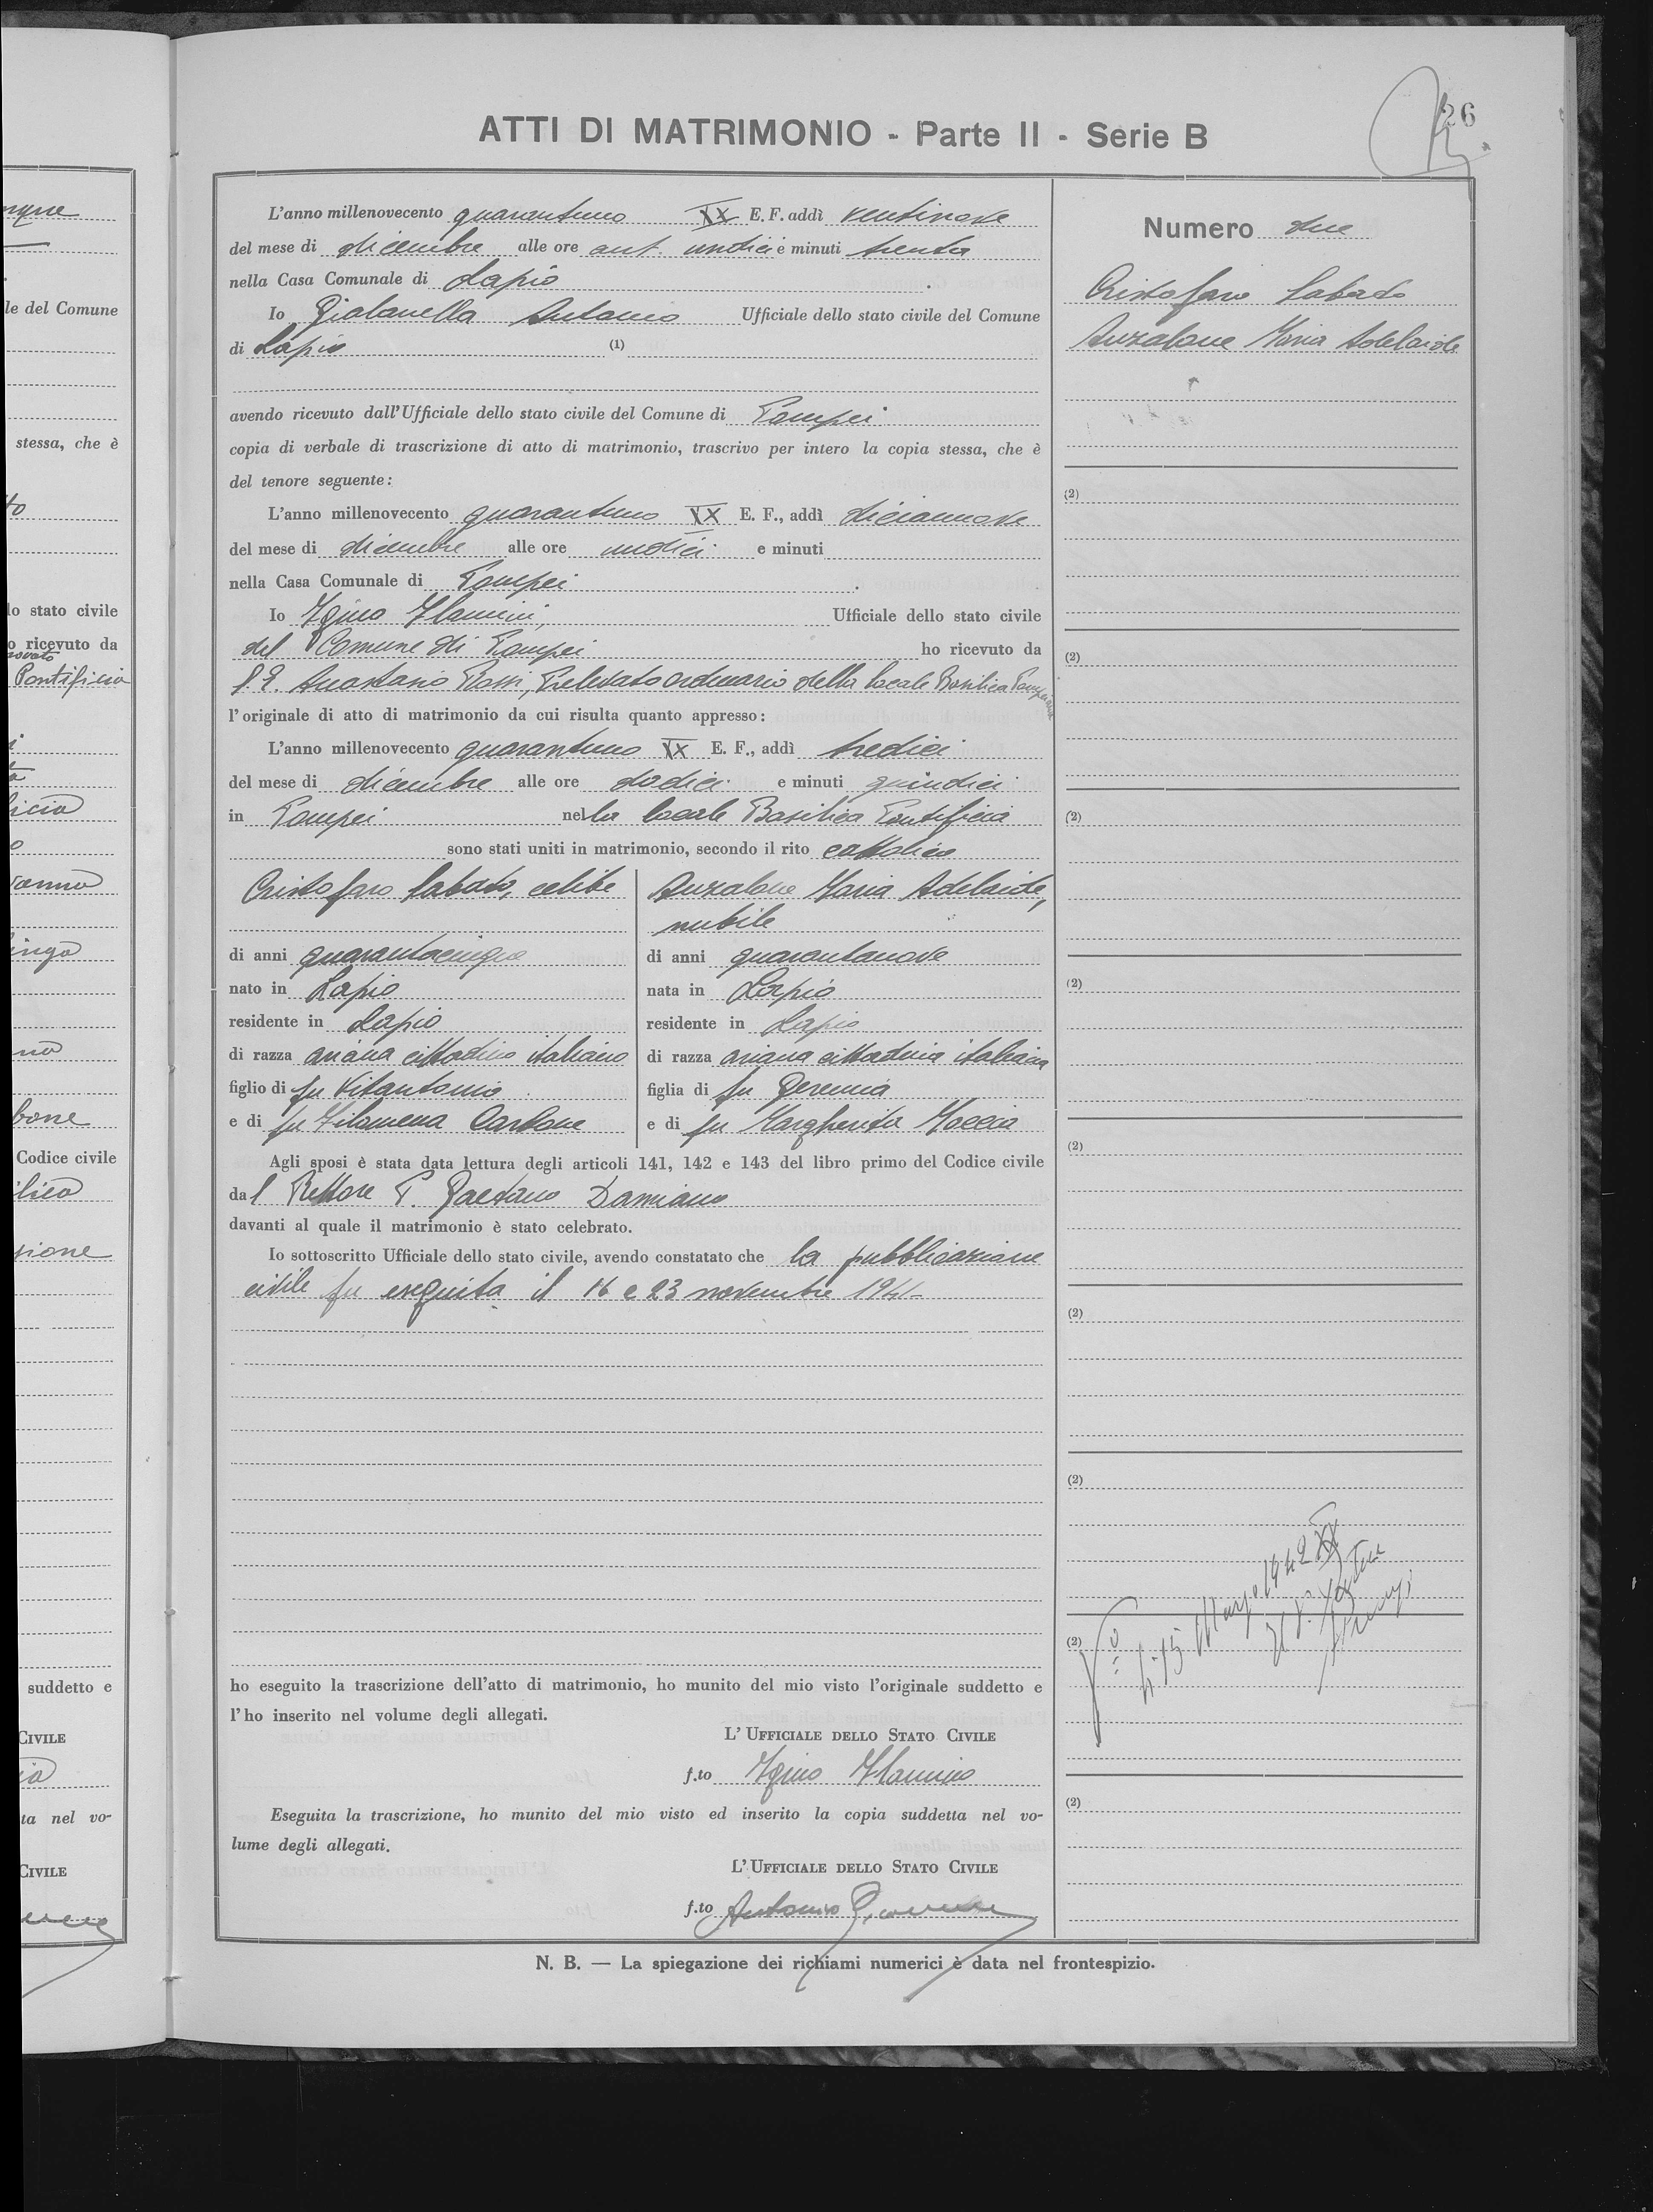 26
ATTI DI MATRIMONIO - Parte II - Serie B
L'anno millenovecento quarantuno XX E. F. addì ventinove
del mese di dicembre alle ore ant. undici e minuti trenta
nella Casa Comunale di Lapio
Io Gialanella Antonio Ufficiale dello stato civile del Comune
di Lapio (1)
avendo ricevuto dall'Ufficiale dello stato civile del Comune di Pompei
copia di verbale di trascrizione di atto di matrimonio, trascrivo per intero la copia stessa, che è
del tenore seguente:
L'anno millenovecento quarantuno XX E. F., addì diciannove
del mese di dicembre alle ore undici e minuti
nella Casa Comunale di Pompei
Io Igino Ufficiale dello stato civile
del Comune di Pompei ho ricevuto da
S. E. Anastasio Rossi, Prelevato ordinario della locale Basilica Pompeiana
l'originale di atto di matrimonio da cui risulta quanto appresso:
L'anno millenovecento quarantuno XX E. F., addì tredici
del mese di dicembre alle ore dodici e minuti quindici
in Pompei nella locale Basilica Pontificia
sono stati uniti in matrimonio, secondo il rito cattolico
Cristofaro Sabato, celibe
di anni quarantacinque
nato in Lapio
residente in Lapio
di razza ariana cittadino italiano
figlio di fu Vitantonio
e di fu Filomena Carbone
Anzalone Maria Adelaide,
nubile
di anni quarantanove
nata in Lapio
residente in Lapio
di razza ariana cittadina italiana
figlia di fu Geremia
e di fu Margherita Moccia
Agli sposi è stata data lettura degli articoli 141, 142 e 143 del libro primo del Codice civile
dal Rettore P. Gaetano Damiano
davanti al quale il matrimonio è stato celebrato.
Io sottoscritto Ufficiale dello stato civile, avendo constatato che la pubblicazione
civile fu eseguita il 16 e 23 novembre 1941-
ho eseguito la trascrizione dell'atto di matrimonio, ho munito del mio visto l'originale suddetto e
l'ho inserito nel volume degli allegati.
L'UFFICIALE DELLO STATO CIVILE
f.to Igino
Eseguita la trascrizione, ho munito del mio visto ed inserito la copia suddetta nel vo-
lume degli allegati.
L'UFFICIALE DELLO STATO CIVILE
f.to Antonio
N. B. — La spiegazione dei richiami numerici è data nel frontespizio.
Numero due
Cristofaro Sabato
Anzalone Maria Adelaide
(2)
(2)
(2)
(2)
(2)
(2)
(2)
(2)
(2)
15 Marzo 1942 XX
le del Comune
stessa, che è
lo stato civile
o ricevuto da
Pontificia
Codice civile
suddetto e
CIVILE
ta nel vo-
CIVILE